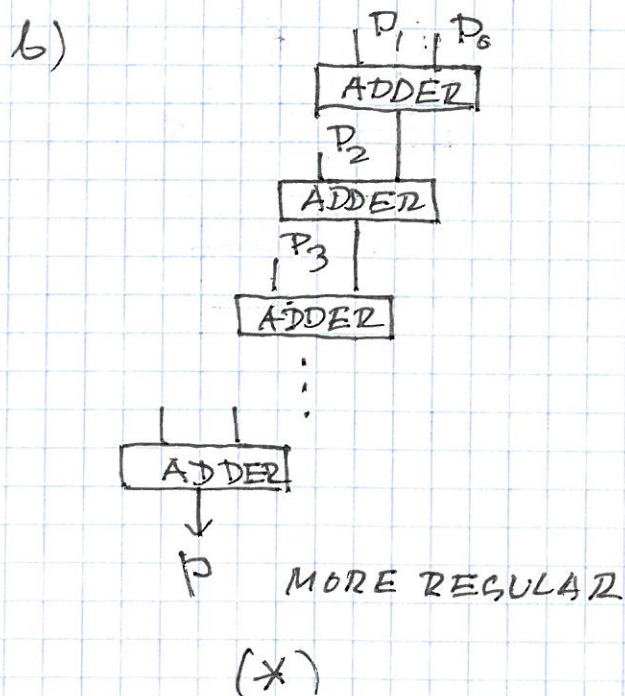 b)
P₁ P₀
ADDER
P₂
ADDER
P₃
ADDER
ADDER
P
MORE REGULAR
(*)